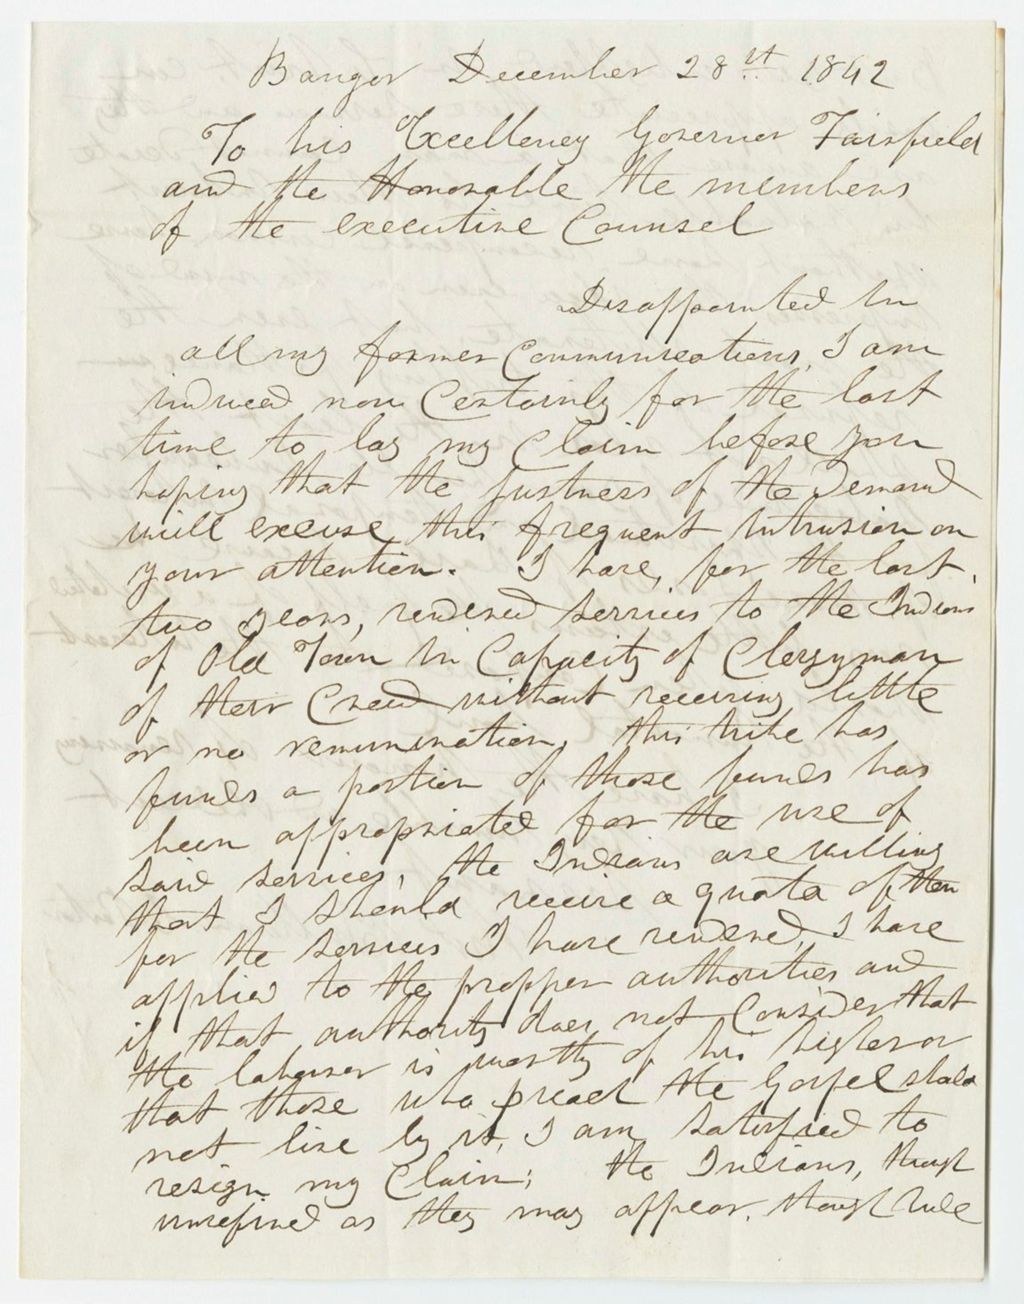 Bangor December 28th 1842
To his Excellency Governor Fairfield
and the Honorable the members
of the executive Counsel
Disappointed in
all my former Communications, I am
induced now Certainly for the last
time to lay my Claim before you
hoping that the justness of the Demand
will excuse this frequent intrusion on
your attention. I have, for the last
two years, rendered services to the Indians
of Old Town in Capacity of Clergyman
of their Creed without receiving little
or no remuneration, this tribe has
funds a portion of those funds has
been appropriated for the use of
said services, the Indians are willing
that I should receive a quota of them
for the services I have rendered, I have
applied to the propper authorities and
if that authority does not Consider that
the labourer is worthy of his
that those who preach the Gospel should
not live by it, I am satisfied to
resign my Claim; the Indians, though
unrefined as they may appear, though rude